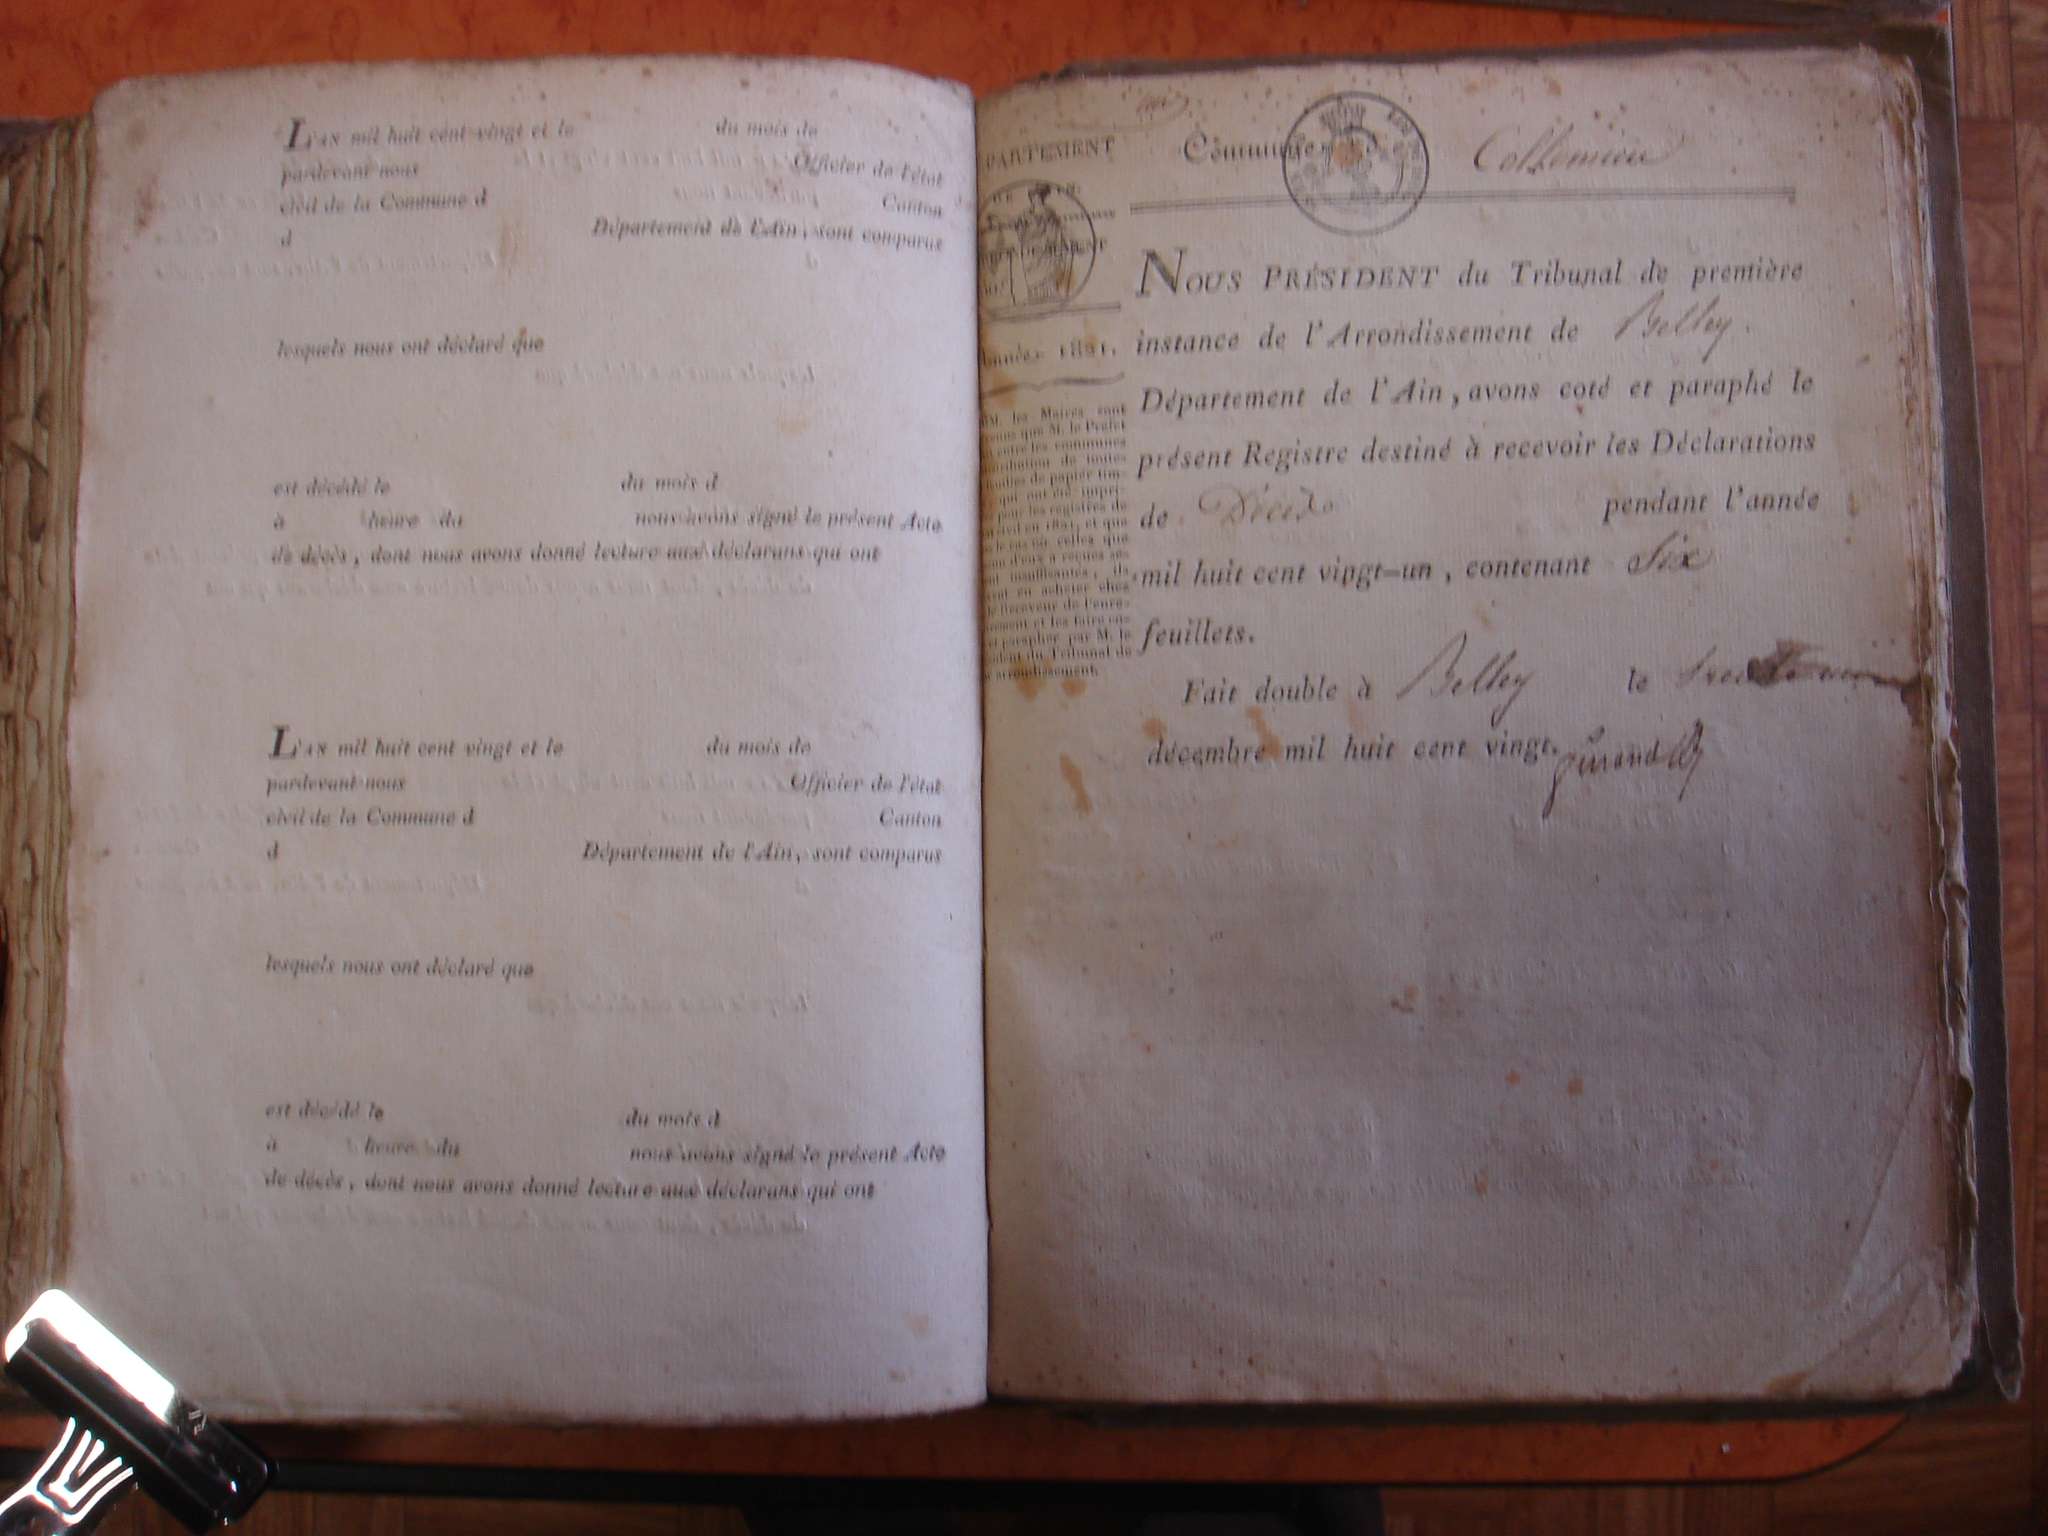 L'AN mil huit cent vingt et le du mois de
pardevant nous Officier de l'état
civil de la Commune d Canton
d Département de l'Ain, sont comparus
lesquels nous ont déclaré que
est décédé le du mois d
à heure du nous avons signé le présent Acte
de décès, dont nous avons donné lecture aux déclarans qui ont
L'AN mil huit cent vingt et le du mois de
pardevant nous Officier de l'état
civil de la Commune d Canton
d Département de l'Ain, sont comparus
lesquels nous ont déclaré que
est décédé le du mois d
à heure du nous avons signé le présent Acte
de décès, dont nous avons donné lecture aux déclarans qui ont
PARTEMENT
Année 1821.
MM. les Maires sont
venus que M. le Préfet
entre les communes
de toutes
feuilles de papier tim-
qui ont été impri-
pour les registres de
civil en 1821, et que
le cas où celles que
d'eux a reçues se-
insuffisantes, ils
en acheter chez
le Receveur de l'enre-
et les faire
et parapher par M. le
dent du Tribunal de
arrondissement.
Commune de Collomieu
NOUS PRÉSIDENT du Tribunal de première
instance de l'Arrondissement de Belley.
Département de l'Ain, avons coté et paraphé le
présent Registre destiné à recevoir les Déclarations
de Décès pendant l'année
mil huit cent vingt-un, contenant Six
feuillets.
Fait double à Belley le
décembre mil huit cent vingt.